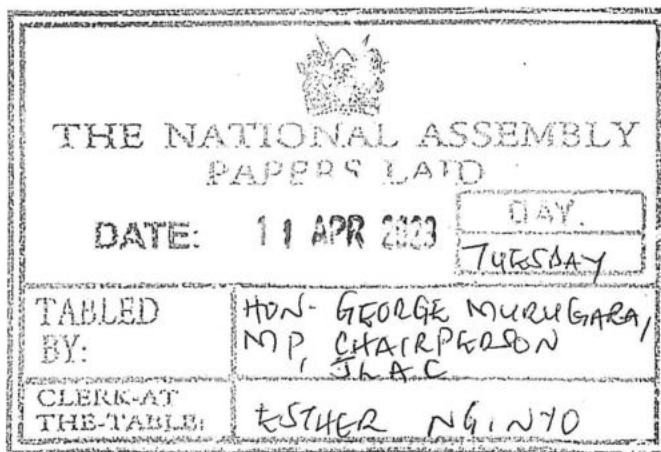 THE NATIONAL ASSEMBLY
PAPERS LAID
DATE: 11 APR 2023
DAY.
TUESDAY
TABLED
BY:
HON- GEORGE MURUGARA,
MP, CHAIRPERSON
JLAC
CLERK-AT
THE-TABLE:
ESTHER NGINYO